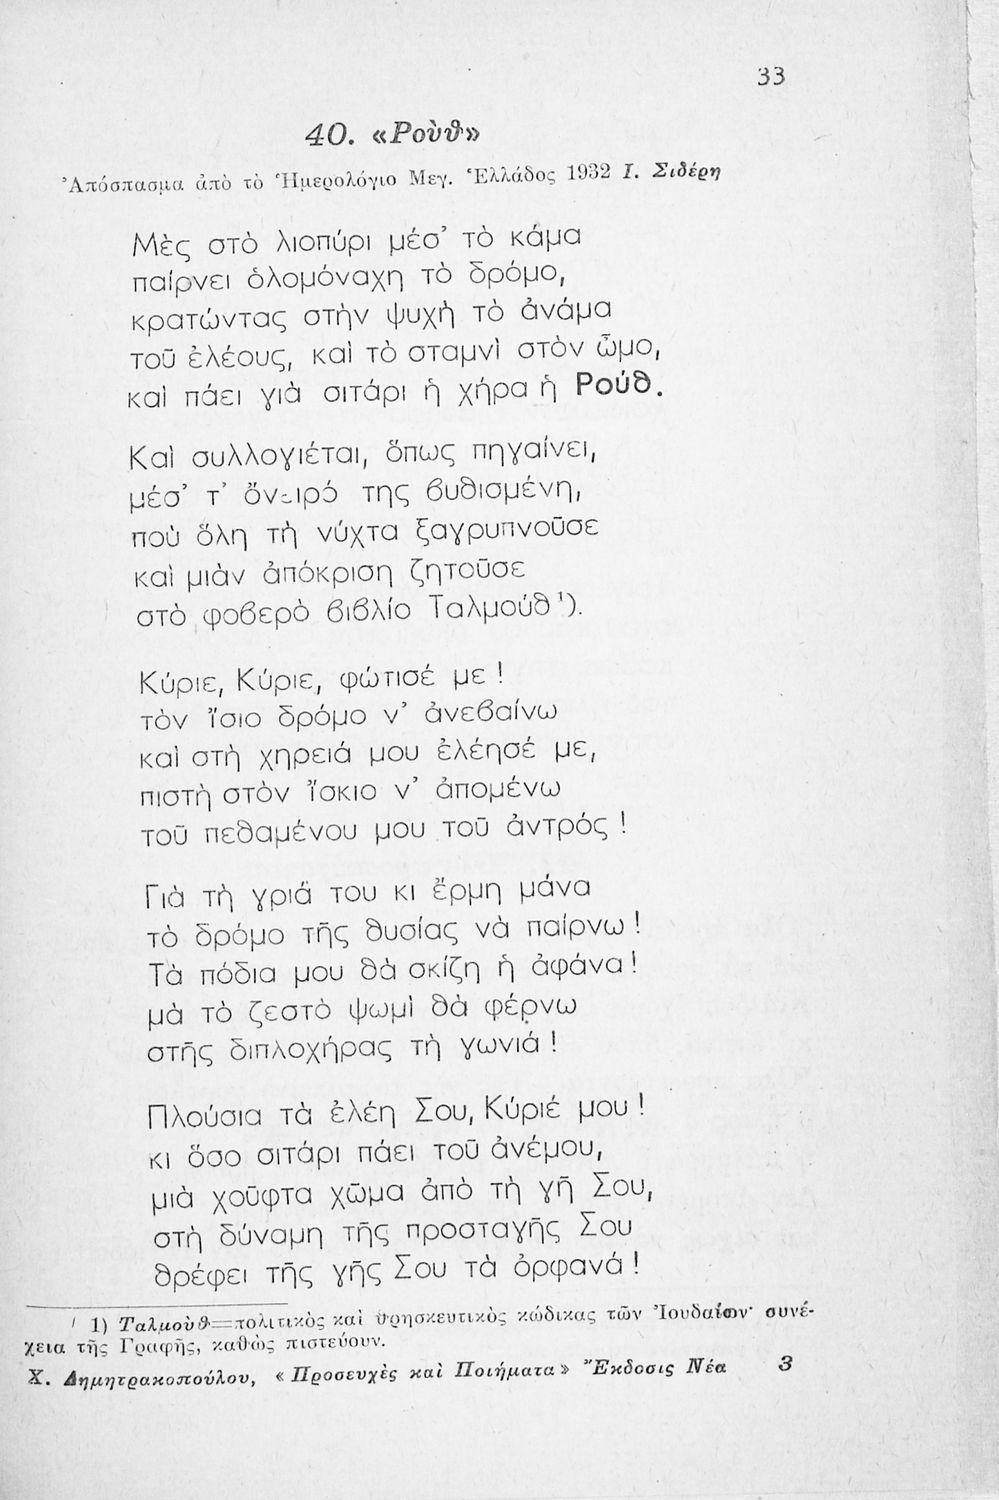 33
40. «Ροὺθ»
Ἀπόσπασμα ἀπὸ τὸ Ἡμερολόγιο Μεγ. Ἑλλάδος 1932 Ι. Σιδέρη
Μὲς στὸ λιοπύρι μέσ' τὸ κάμα
παίρνει ὁλομόναχη τὸ δρόμο,
κρατώντας στὴν ψυχὴ τὸ ἀνάμα
τοῦ ἐλέους, καὶ τὸ σταμνὶ στὸν ὦμο,
καὶ πάει γιὰ σιτάρι ἡ χήρα ἡ Ρούθ.
Καὶ συλλογιέται, ὅπως πηγαίνει,
μέσ' τ' ὄνειρό της βυθισμένη,
ποὺ ὅλη τὴ νύχτα ξαγρυπνοῦσε
καὶ μιὰν ἀπόκριση ζητοῦσε
στὸ φοβερὸ βιβλίο Ταλμούθ ¹).
Κύριε, Κύριε, φώτισέ με !
τὸν ἴσιο δρόμο ν' ἀνεβαίνω
καὶ στὴ χηρειά μου ἐλέησέ με,
πιστὴ στὸν ἴσκιο ν' ἀπομένω
τοῦ πεθαμένου μου τοῦ ἀντρός !
Γιὰ τὴ γριά του κι ἔρμη μάνα
τὸ δρόμο τῆς θυσίας νὰ παίρνω !
Τὰ πόδια μου θὰ σκίζη ἡ ἀφάνα !
μὰ τὸ ζεστὸ ψωμὶ θὰ φέρνω
στῆς διπλοχήρας τὴ γωνιά !
Πλούσια τὰ ἐλέη Σου, Κύριέ μου !
κι ὅσο σιτάρι πάει τοῦ ἀνέμου,
μιὰ χοῦφτα χῶμα ἀπὸ τὴ γῆ Σου,
στὴ δύναμη τῆς προσταγῆς Σου
θρέφει τῆς γῆς Σου τὰ ὀρφανά !
1) Ταλμοὺθ=πολιτικὸς καὶ θρησκευτικὸς κώδικας τῶν Ἰουδαίων· συνέ-
χεια τῆς Γραφῆς, καθὼς πιστεύουν.
Χ. Δημητρακοπούλου, «Προσευχὲς καὶ Ποιήματα» Ἔκδοσις Νέα 3